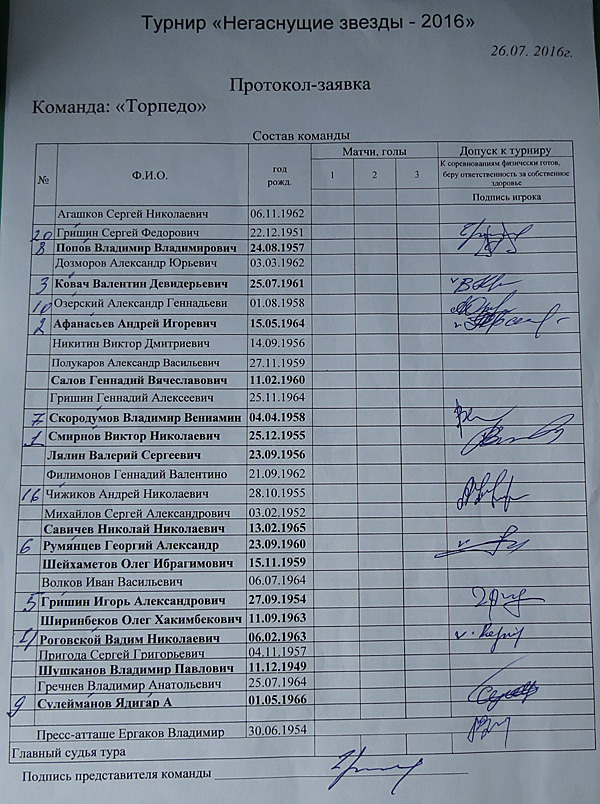 Турнир «Негаснущие звезды - 2016»
26.07. 2016г.
Протокол-заявка
Команда: «Торпедо»
Состав команды
№ Ф.И.О. год рожд. Матчи, голы 1 2 3 Допуск к турниру
К соревнованиям физически готов, беру ответственность за собственное здоровье
Подпись игрока
Агашков Сергей Николаевич 06.11.1962
20 Гришин Сергей Федорович 22.12.1951
8 Попов Владимир Владимирович 24.08.1957
Дозморов Александр Юрьевич 03.03.1962
3 Ковач Валентин Девидерьевич 25.07.1961
10 Озерский Александр Геннадьеви 01.08.1958
2 Афанасьев Андрей Игоревич 15.05.1964
Никитин Виктор Дмитриевич 14.09.1956
Полукаров Александр Васильевич 27.11.1959
Салов Геннадий Вячеславович 11.02.1960
Гришин Геннадий Алексеевич 25.11.1964
7 Скородумов Владимир Вениамин 04.04.1958
1 Смирнов Виктор Николаевич 25.12.1955
Лялин Валерий Сергеевич 23.09.1956
Филимонов Геннадий Валентино 21.09.1962
16 Чижиков Андрей Николаевич 28.10.1955
Михайлов Сергей Александрович 03.02.1952
Савичев Николай Николаевич 13.02.1965
6 Румянцев Георгий Александр 23.09.1960
Шейхаметов Олег Ибрагимович 15.11.1959
Волков Иван Васильевич 06.07.1964
5 Гришин Игорь Александрович 27.09.1954
Ширинбеков Олег Хакимбекович 11.09.1963
Роговской Вадим Николаевич 06.02.1963
Пригода Сергей Григорьевич 04.11.1957
Шушканов Владимир Павлович 11.12.1949
Гречнев Владимир Анатольевич 25.07.1964
9 Сулейманов Ядигар А 01.05.1966
Пресс-атташе Ергаков Владимир 30.06.1954
Главный судья тура
Подпись представителя команды